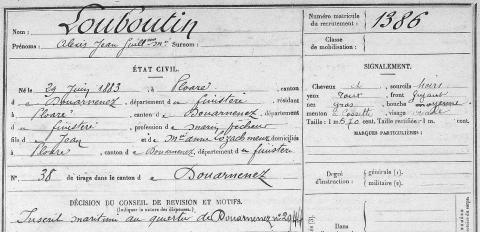 Nom : Louboutin
Prénoms : Alexis Jean Guill^me M^ie Surnom :
Numéro matricule du recrutement : 1386
Classe de mobilisation :
ÉTAT CIVIL.
Né le 29 Juin 1883 à Ploaré, canton
d e Douarnenez, département d u finistère, résidant
à Ploaré, canton d e Douarnenez, département
d u finistère, profession de marin pêcheur
fils d e Jean et d e M^ie Anne domiciliés
à Ploaré, canton d e Douarnenez, département d u finistère
N° 38 de tirage dans le canton d e Douarnenez
SIGNALEMENT.
Cheveux et sourcils noirs
yeux roux front fuyant
nez gros bouche moyenne
menton à fossette visage ovale
Taille : 1 m. 670 cent. Taille rectifiée : 1 m. cent.
MARQUES PARTICULIÈRES :
Degré d'instruction : générale (1).
militaire (2).
DÉCISION DU CONSEIL DE RÉVISION ET MOTIFS.
(Indiquer la nature des dispenses.)
Inscrit maritime au quartier de Douarnenez n°